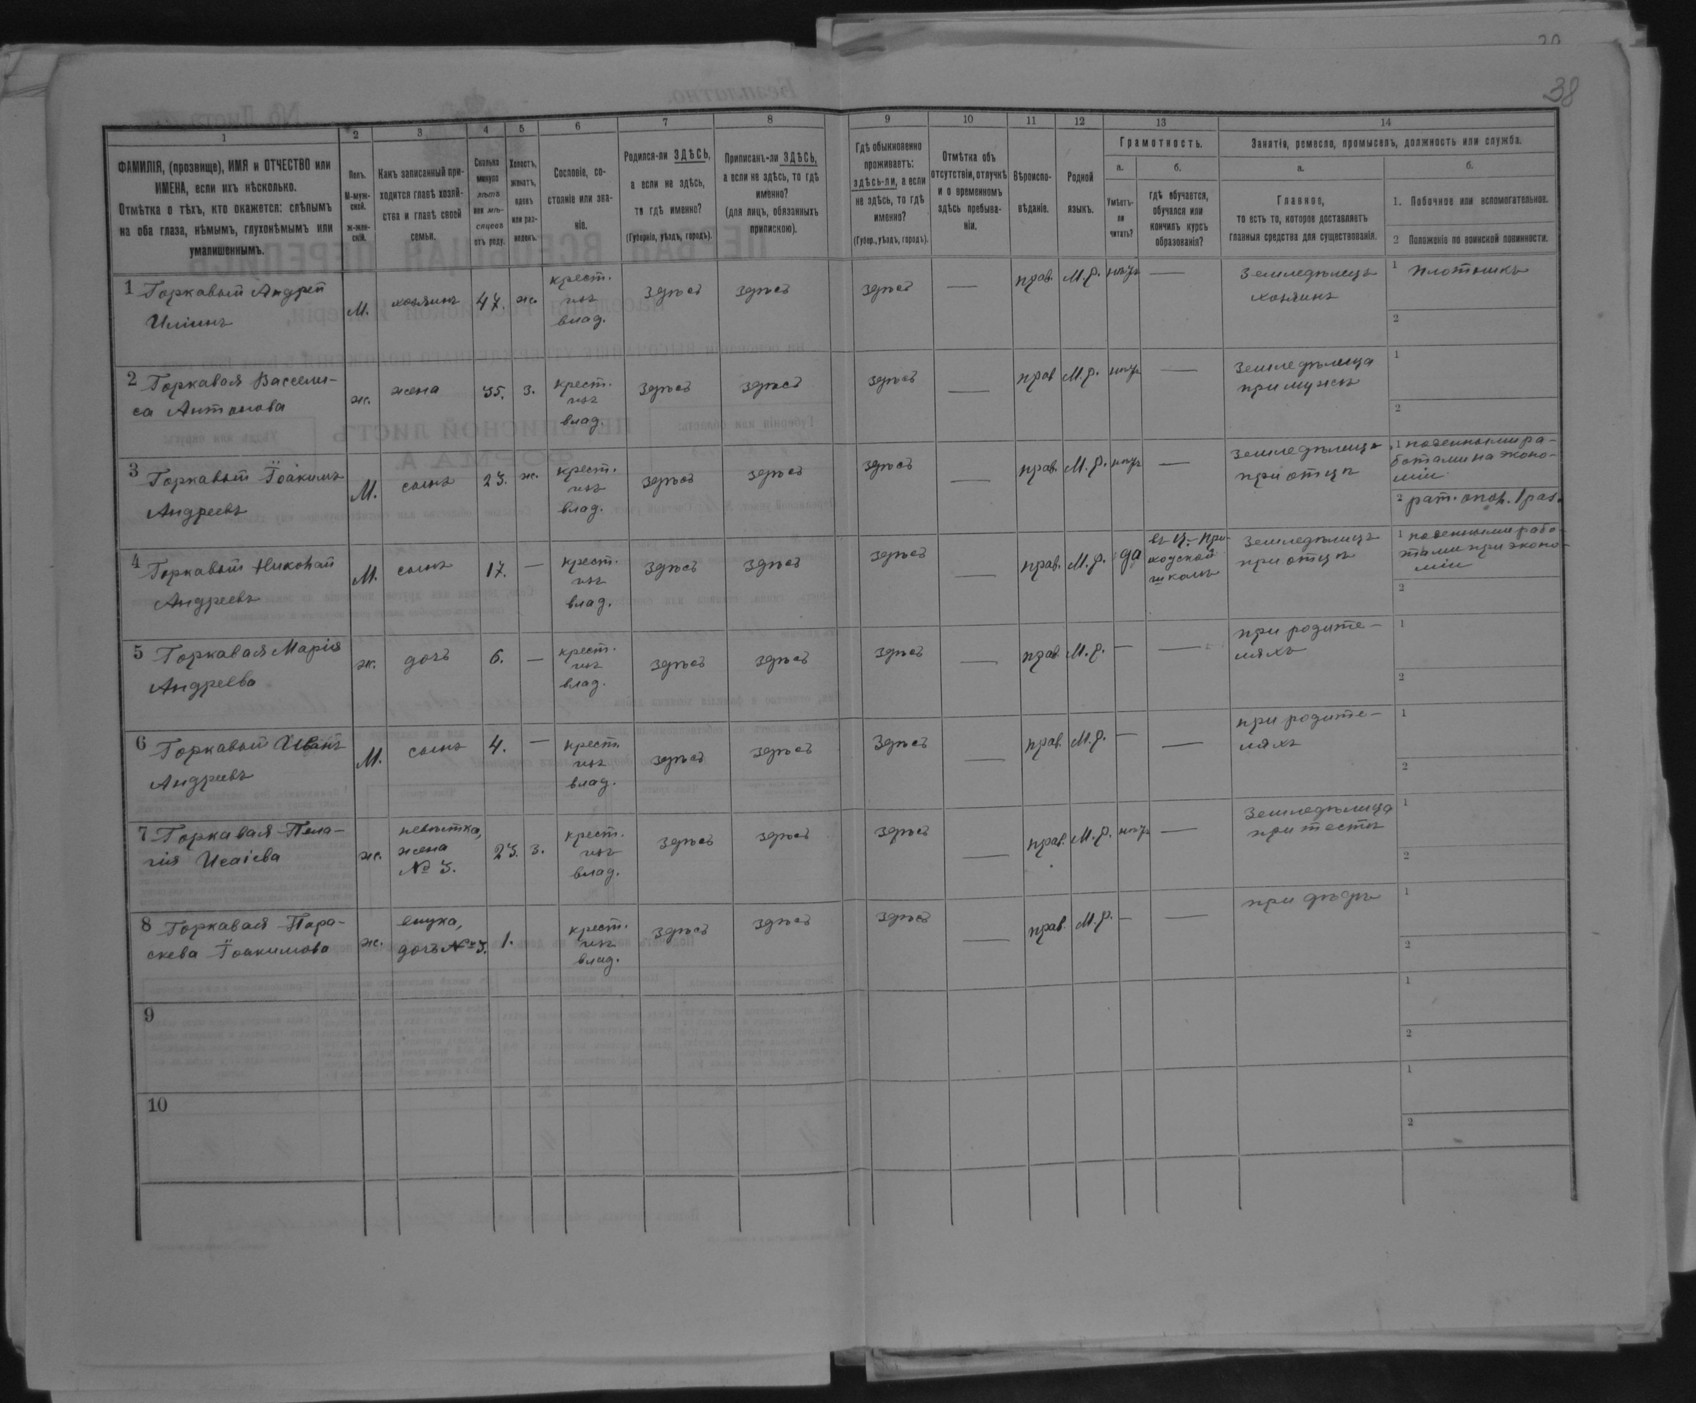 38
1 2 3 4 5 6 7 8 9 10 11 12 13 14
ФАМИЛІЯ, (прозвище), ИМЯ и ОТЧЕСТВО или
ИМЕНА, если ихъ нѣсколько.
Отмѣтка о тѣхъ, кто окажется: слѣпымъ
на оба глаза, нѣмымъ, глухонѣмымъ или
умалишеннымъ.
Полъ.
М-муж-
ской.
ж-жен-
скій.
Какъ записанный при-
ходится главѣ хозяй-
ства и главѣ своей
семьи.
Сколько
минуло
лѣтъ
или мѣ-
сяцевъ
отъ роду.
Холостъ,
женатъ,
вдовъ
или раз-
веденъ.
Сословіе, со-
стояніе или зва-
ніе.
Родился-ли ЗДѢСЬ,
а если не здѣсь,
то гдѣ именно?
(Губернія, уѣздъ, городъ).
Приписанъ-ли ЗДѢСЬ,
а если не здѣсь, то гдѣ
именно?
(для лицъ, обязанныхъ
припискою).
Гдѣ обыкновенно
проживаетъ:
здѣсь-ли, а если
не здѣсь, то гдѣ
именно?
(Губер., уѣздъ, городъ).
Отмѣтка объ
отсутствіи, отлучкѣ
и о временномъ
здѣсь пребыва-
ніи.
Вѣроиспо-
вѣданіе.
Родной
языкъ.
Грамотность.
а. б.
Умѣетъ-
ли
читать?
гдѣ обучается,
обучался или
кончилъ курсъ
образованія?
Занятіе, ремесло, промыселъ, должность или служба.
а. б.
Главное,
то есть то, которое доставляетъ
главныя средства для существованія.
1. Побочное или вспомогательное.
2 Положеніе по воинской повинности.
1 Горкавый Андрей
Иліинъ
М. хозяинъ 47. ж.
крест.
изъ
влад.
здѣсь здѣсь здѣсь — прав. М.р. нѣтъ —
Земледѣлецъ
хозяинъ
1 плотникъ
2
2 Горкавая Васели-
са Антонова
ж. жена 35. з.
крест.
изъ
влад.
здѣсь здѣсь здѣсь — прав М.р. нѣтъ —
Земледѣлица
при мужѣ
1
2
3 Горкавый Іоакимъ
Андреевъ
М. сынъ 23. ж.
крест.
изъ
влад.
здѣсь здѣсь здѣсь — прав. М.р. нѣтъ —
Земледѣлецъ
при отцѣ
1 поденными ра-
ботами на эконо-
міи
2 рат. опол. 1 раз.
4 Горкавый Николай
Андреевъ
М. сынъ 17. —
крест.
изъ
влад.
здѣсь здѣсь здѣсь — прав. М.р. да
въ Ц.-При-
ходской
школѣ
Земледѣлецъ
при отцѣ
1 поденными рабо-
тами при эконо-
міи
2
5 Горкавая Марія
Андреева
ж. дочь 6. —
крест.
изъ
влад.
здѣсь здѣсь здѣсь — прав М.р. — —
при родите-
ляхъ
1
2
6 Горкавый Иванъ
Андреевъ
М. сынъ 4. —
крест.
изъ
влад.
здѣсь здѣсь Здѣсь — прав. М.р. — —
при родите-
ляхъ
1
2
7 Горкавая Пела-
гія Исаіева
ж.
невѣстка,
жена
№ 3.
23. з.
крест.
изъ
влад.
здѣсь здѣсь здѣсь — прав. М.р. нѣтъ —
Земледѣлица
при тестѣ
1
2
8 Горкавая Пара-
скева Іоакимова
ж.
внука,
дочь № 3.
1.
крест.
изъ
влад.
здѣсь здѣсь здѣсь — прав. М.р. — —
при дѣдѣ
1
2
9
1
2
10
1
2